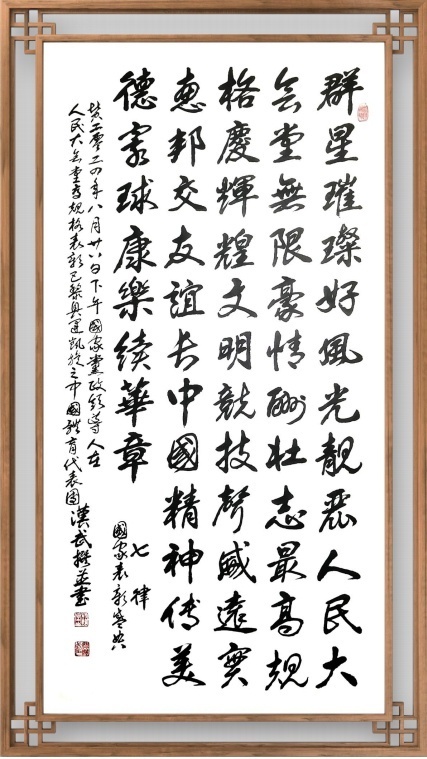 群星璀璨好風光靚麗人民大
会堂無限豪情酬壯志最高規
格慶輝煌文明競技聲威遠實
惠邦交友誼長中國精神傳美
德寰球康樂續華章
七律
國家表彰盛典
二零二四年八月廿日下午國家黨政領導人在
人民大会堂高規格表彰巴黎奧運凱旋之中國體育代表團 漢武撰並書